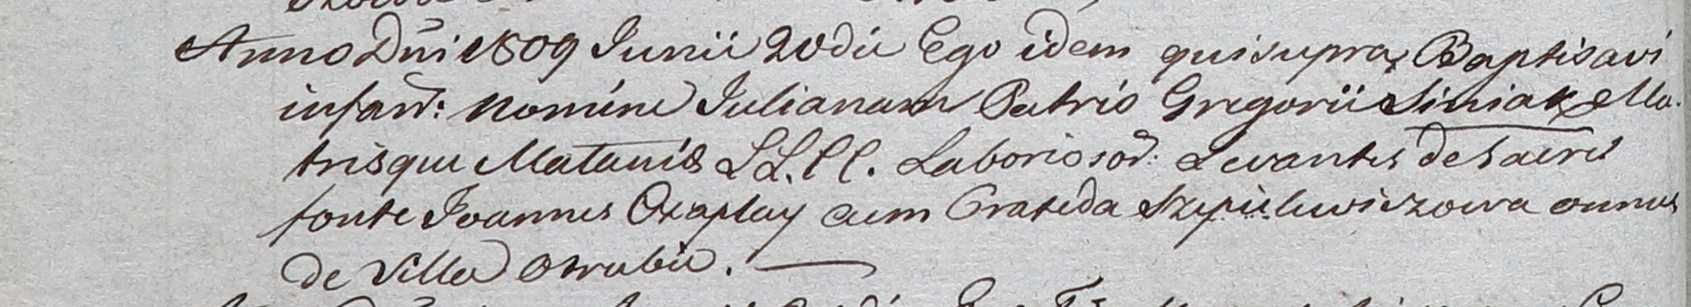 Anno Dñi 1809 Junii 20 die Ego idem qui supra Baptisavi
infan̄: nomine Julianam Patris Gregorii Siniak Ma-
trisque Matanis LL. CC. Laborioso͞r: Levantes de sacro
fonte Joannes Czaplay cum Crateda Szepielewiczowa omnes
de Villa Otrubie.